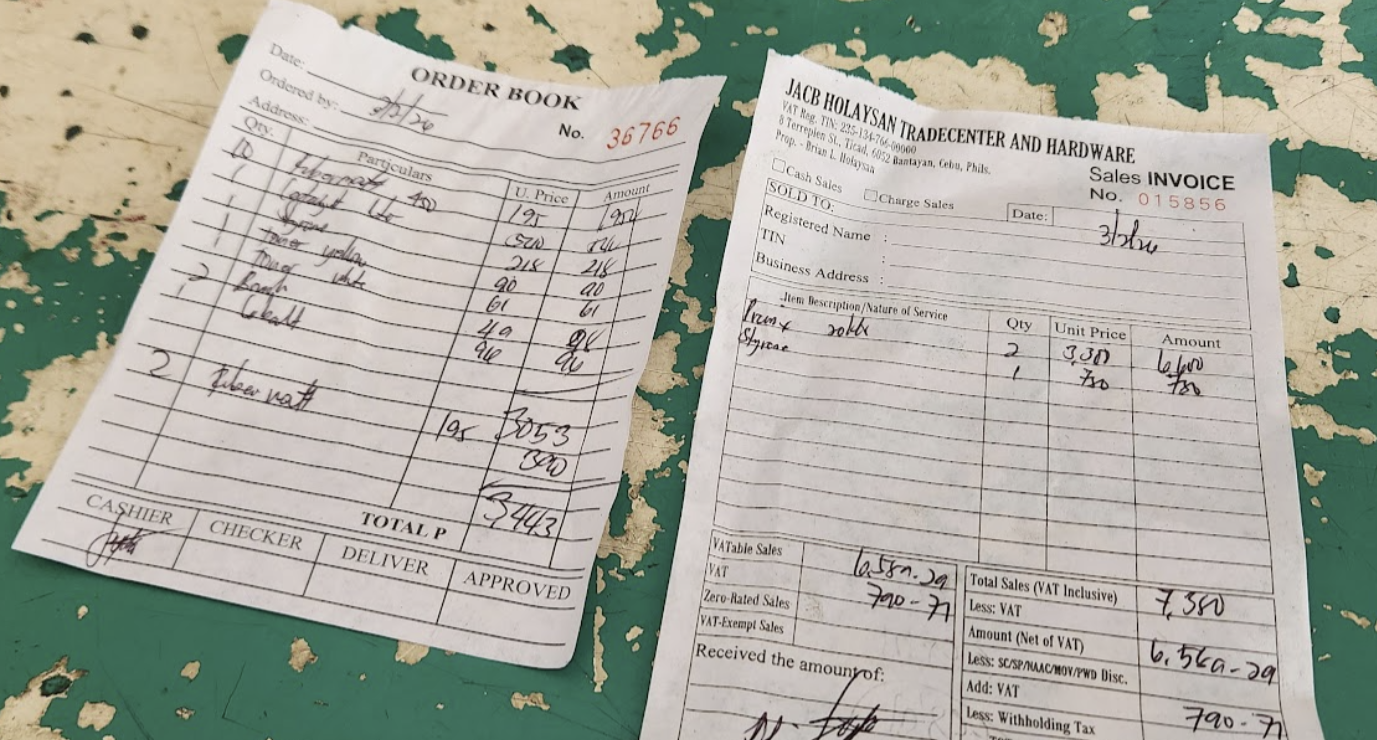 ORDER BOOK
Date: 3/2/26
Ordered by:
No. 36766
Address:
Qty. Particulars U. Price Amount
10 Fiber matt 450 195 1950
1 Catalyst 520
1 Styrene 218 218
1 Toner yellow 90 90
1 Toner white 61 61
2 49 98
1 Cobalt 96 96
3053
2 Fiber matt 195 390
3443
TOTAL P
CASHIER CHECKER DELIVER APPROVED
JACB HOLAYSAN TRADECENTER AND HARDWARE
VAT Reg. TIN: 225-134-766-00000
8 Terreplen St., Ticad, 6052 Bantayan, Cebu, Phils.
Prop. - Brian L. Holaysan
Sales INVOICE
Cash Sales Charge Sales
No. 015856
SOLD TO: Date: 3/2/26
Registered Name :
TIN :
Business Address :
Item Description/Nature of Service Qty Unit Price Amount
2 3,300 6,600
Styrene 1 780 780
VATable Sales 6,589.29
VAT 790-71
Zero-Rated Sales
VAT-Exempt Sales
Received the amount of:
Total Sales (VAT Inclusive) 7,380
Less: VAT
Amount (Net of VAT) 6,589-29
Less: SC/SP/NAAC/MOV/PWD Disc.
Add: VAT 790-71
Less: Withholding Tax